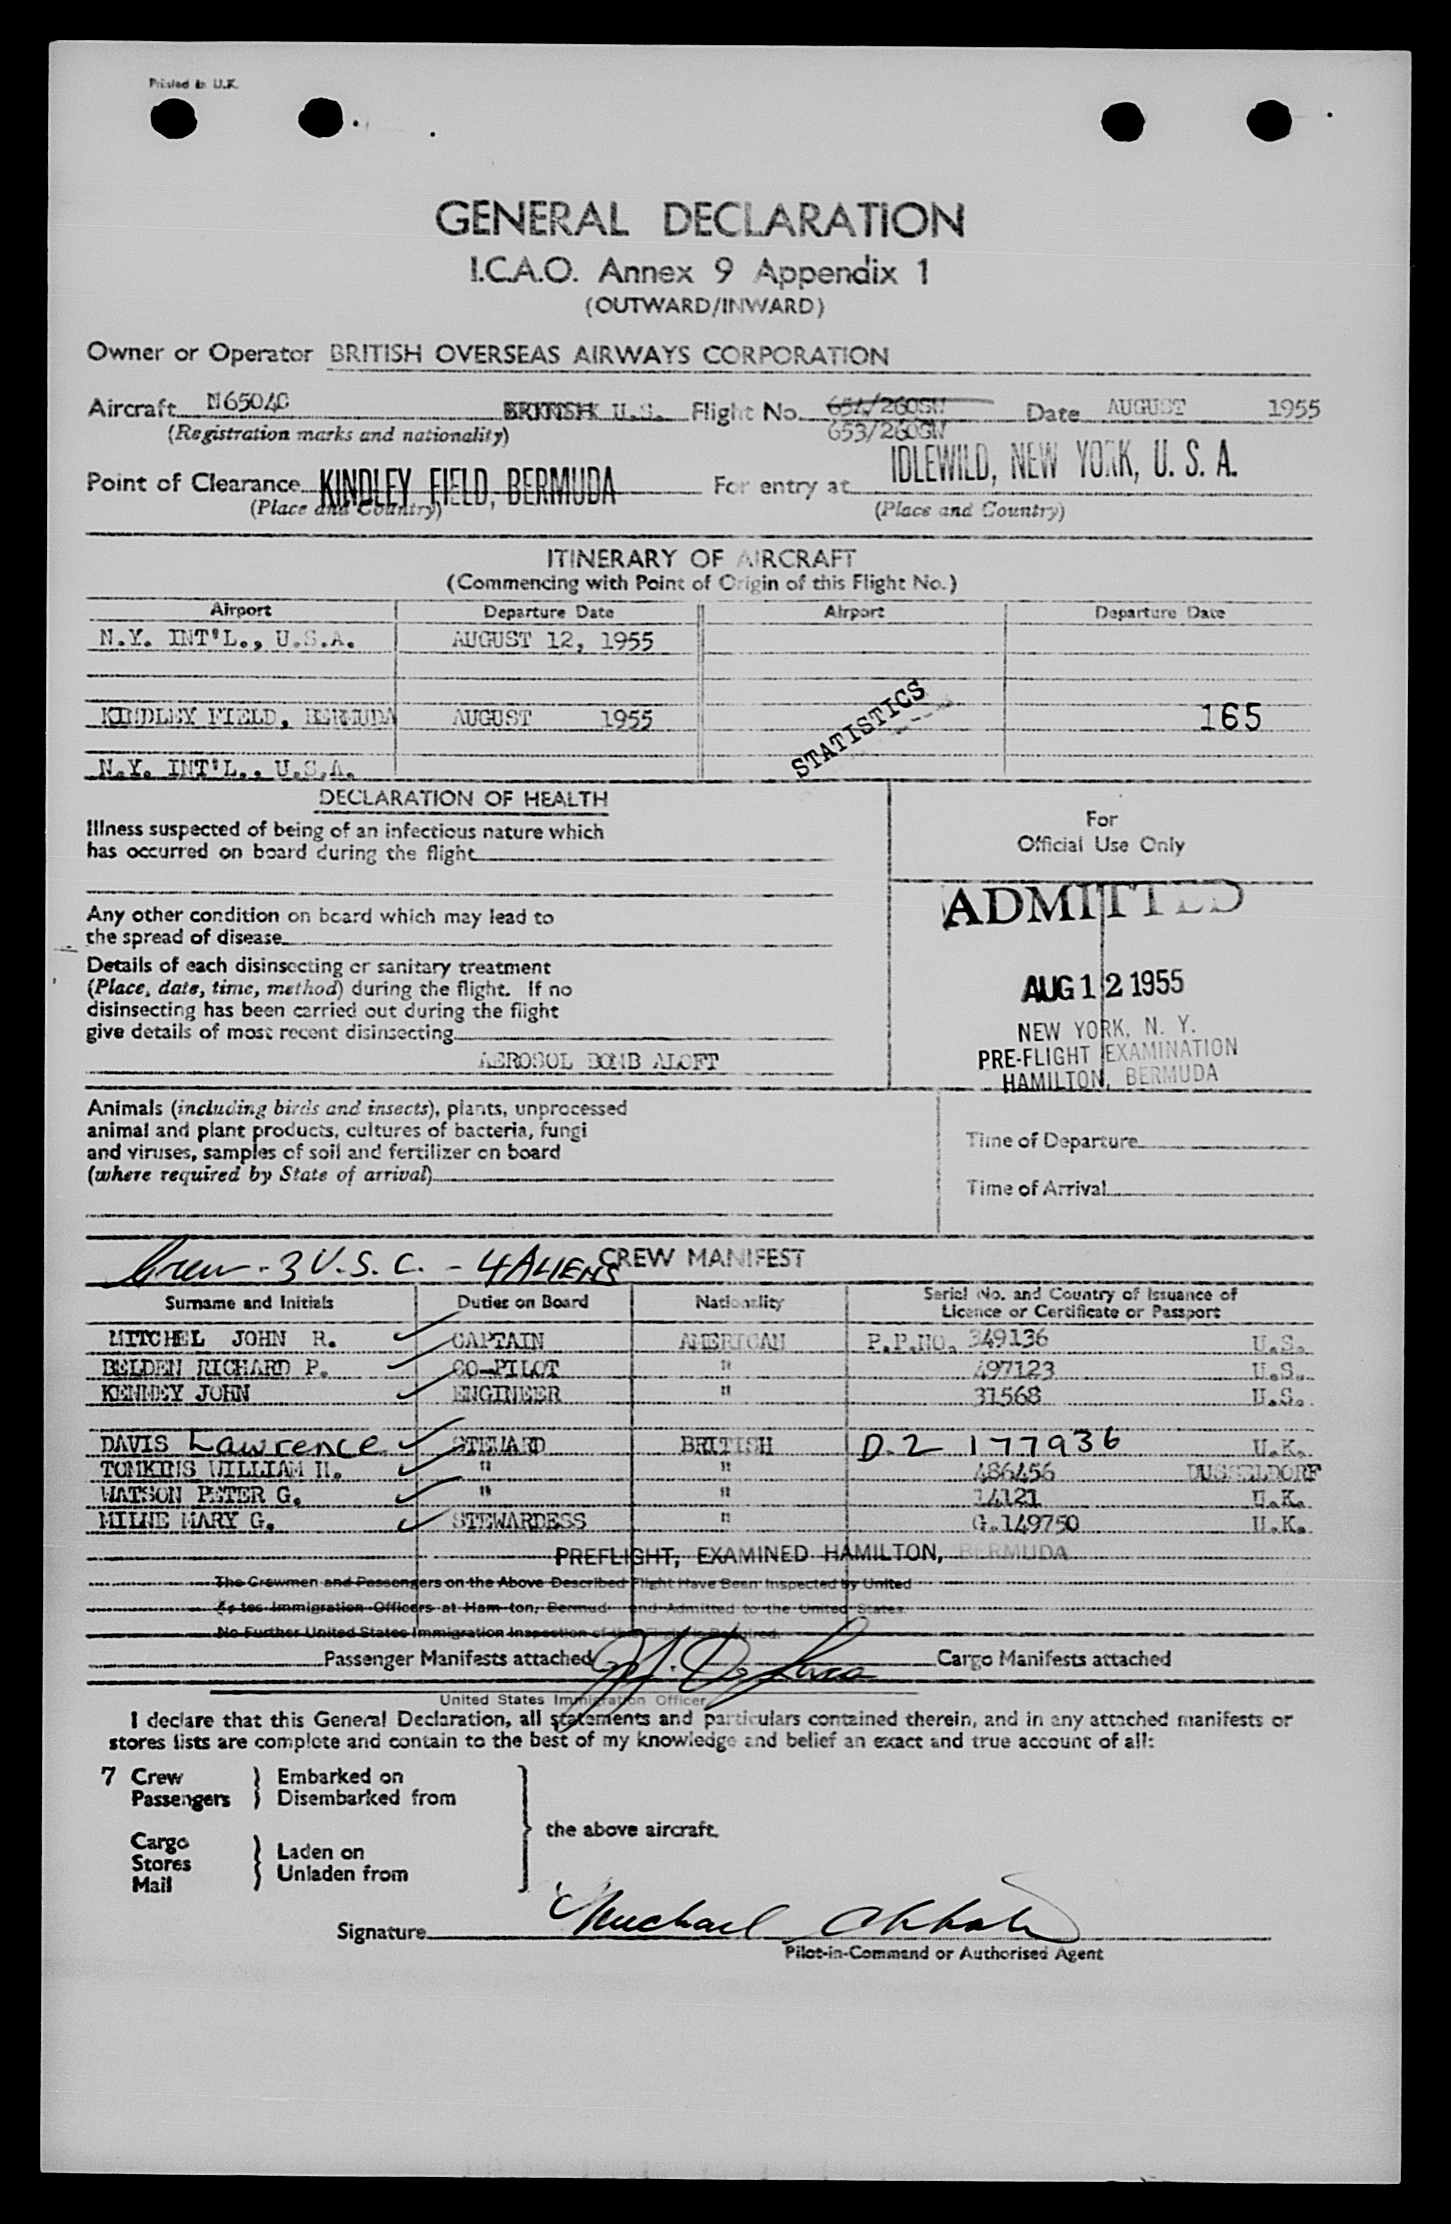 Printed in U.K.
GENERAL DECLARATION
I.C.A.O. Annex 9 Appendix 1
(OUTWARD/INWARD)
Owner or Operator BRITISH OVERSEAS AIRWAYS CORPORATION
Aircraft N6504C BRITISH U.S. Flight No. 654/260SW Date AUGUST 1955
(Registration marks and nationality) 653/260GW
Point of Clearance KINDLEY FIELD, BERMUDA For entry at IDLEWILD, NEW YORK, U. S. A.
(Place and Country) (Place and Country)
ITINERARY OF AIRCRAFT
(Commencing with Point of Origin of this Flight No.)
Airport Departure Date Airport Departure Date
N.Y. INT'L., U.S.A. AUGUST 12, 1955
KINDLEY FIELD, BERMUDA AUGUST 1955 STATISTICS 165
N.Y. INT'L., U.S.A.
DECLARATION OF HEALTH
Illness suspected of being of an infectious nature which
has occurred on board during the flight
Any other condition on board which may lead to
the spread of disease
Details of each disinsecting or sanitary treatment
(Place, date, time, method) during the flight. If no
disinsecting has been carried out during the flight
give details of most recent disinsecting
AEROSOL BOMB ALOFT
For
Official Use Only
ADMITTED
AUG 12 1955
NEW YORK, N. Y.
PRE-FLIGHT EXAMINATION
HAMILTON, BERMUDA
Animals (including birds and insects), plants, unprocessed
animal and plant products, cultures of bacteria, fungi
and viruses, samples of soil and fertilizer on board
(where required by State of arrival)
Time of Departure
Time of Arrival
Crew - 3 U.S.C. - 4 ALIENS CREW MANIFEST
Surname and Initials Duties on Board Nationality Serial No. and Country of Issuance of
Licence or Certificate or Passport
MITCHEL JOHN R. CAPTAIN AMERICAN P.P.NO. 349136 U.S.
BELDEN RICHARD P. CO-PILOT " 497123 U.S.
KENNEY JOHN ENGINEER " 31568 U.S.
DAVIS Lawrence STEWARD BRITISH D.2 177936 U.K.
TOMKINS WILLIAM H. " " 486456 DUSSELDORF
WATSON PETER G. " " 14121 U.K.
MILNE MARY G. STEWARDESS " G.149750 U.K.
PREFLIGHT, EXAMINED HAMILTON, BERMUDA
The Crewmen and Passengers on the Above Described Flight Have Been Inspected by United
States Immigration Officers at Hamilton, Bermuda and Admitted to the United States.
No Further United States Immigration Inspection of this Flight is Required.
Passenger Manifests attached Cargo Manifests attached
United States Immigration Officer
I declare that this General Declaration, all statements and particulars contained therein, and in any attached manifests or
stores lists are complete and contain to the best of my knowledge and belief an exact and true account of all:
7 Crew } Embarked on
Passengers } Disembarked from
the above aircraft.
Cargo
Stores } Laden on
Mail } Unladen from
Signature Michael
Pilot-in-Command or Authorised Agent